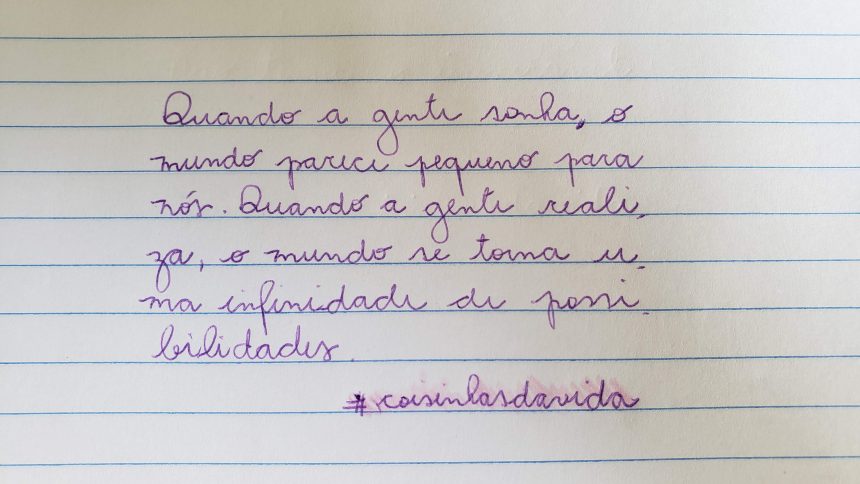 Quando a gente sonha, o
mundo parece pequeno para
nós. Quando a gente reali-
za, o mundo se torna u-
ma infinidade de possi-
bilidades.
#coisinhasdavida